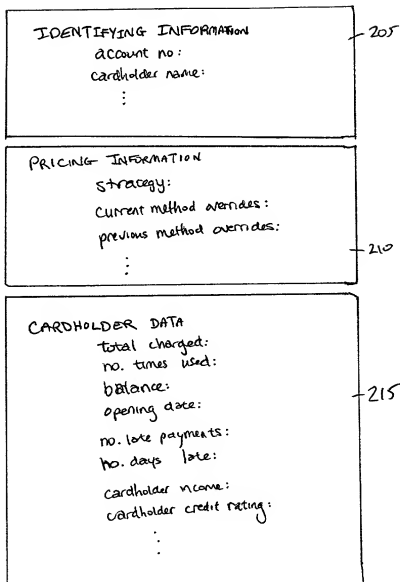 IDENTIFYING INFORMATION
account no:
cardholder name:
⋮
205
PRICING INFORMATION
strategy:
current method overrides:
previous method overrides:
⋮
210
CARDHOLDER DATA
total charged:
no. times used:
balance:
opening date:
no. late payments:
no. days late:
cardholder income:
cardholder credit rating:
⋮
215